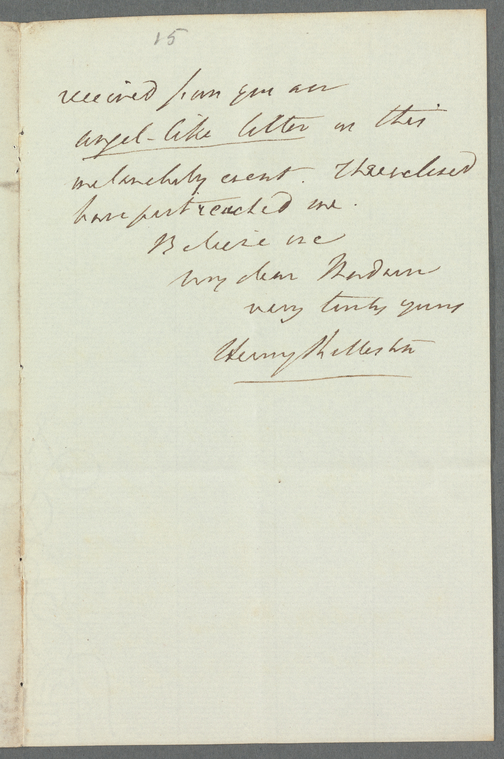 15
received from you an
angel-like letter on this
melancholy event. The enclosed
have just reached me.
Believe me
my dear Madam
very truly yours
Henry